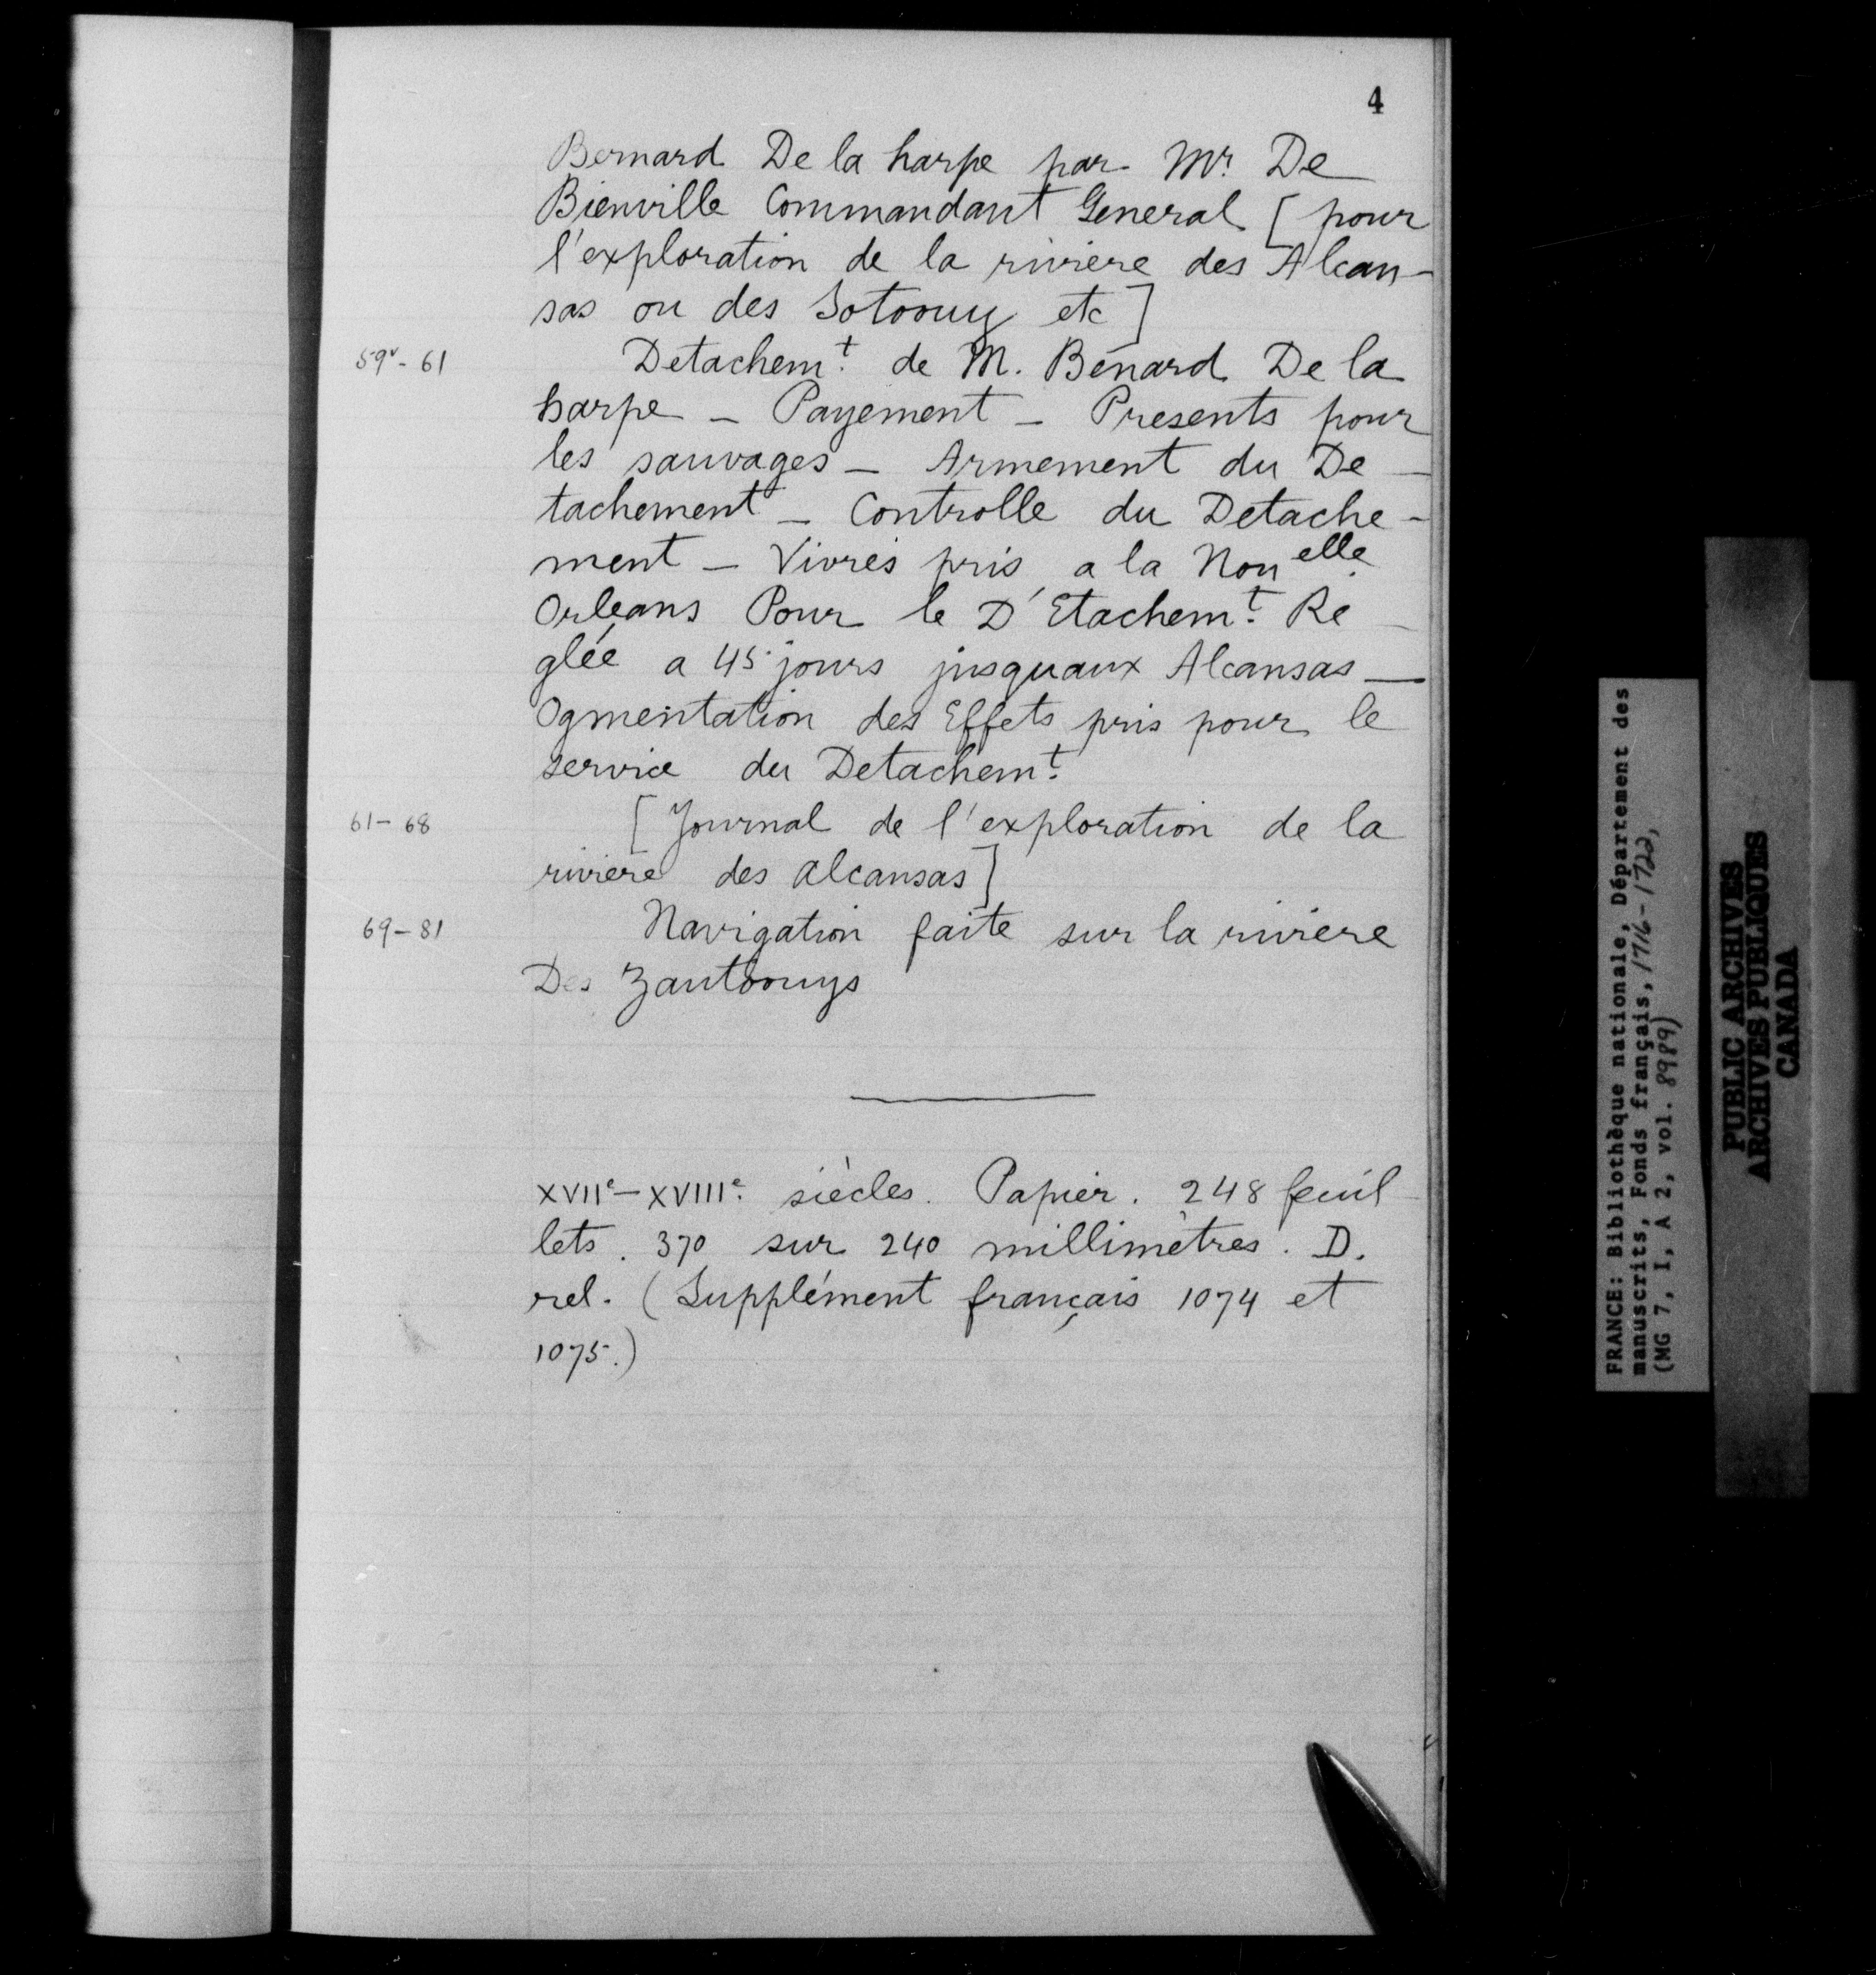 4
Bernard De la harpe par Mr. De
Bienville Commandant General [pour
l'exploration de la riviere des Alcan-
sas ou des Sotoouy etc]
59v - 61 Detachemt. de M. Bénard De la
harpe - Payement - Presents pour
les sauvages - Armement du De-
tachement - Controlle du Detache-
ment - Vivres pris a la Nouelle
Orleans Pour le D'Etachemt. Re-
glée a 45 jours jusquaux Alcansas -
Ogmentation des Effets pris pour le
service du Detachemt.
61 - 68 [Journal de l'exploration de la
riviere des alcansas]
69 - 81 Navigation faite sur la riviere
Des Zautoouys
XVIIe - XVIIIe. siècles. Papier. 248 feuil-
lets. 370 sur 240 millimètres. D.
rel. (Supplément français 1074 et
1075.)
FRANCE: Bibliothèque nationale, Département des
manuscrits, Fonds français, 1716-1722,
(MG 7, I, A 2, vol. 8989)
PUBLIC ARCHIVES
ARCHIVES PUBLIQUES
CANADA